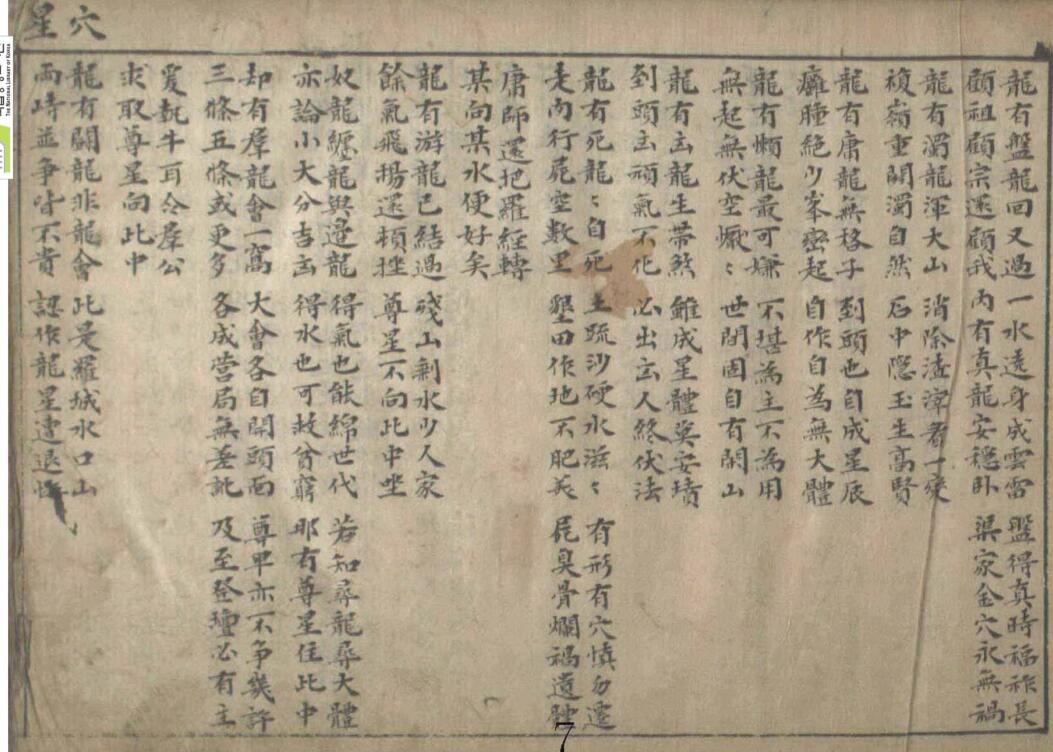 穴星
龍有盤龍回又過 一水遶身成雲雷 盤得真時福祚長
顧祖顧宗還顧我 內有真龍安穩臥 渠家金穴永無禍
龍有濁龍渾大山 消除渣滓看一変
複嶺重関濁自然 石中隱玉生高賢
龍有庸龍無格子 到頭也自成星辰
癰腫絶少峯巒起 自作自為無大體
龍有懶龍最可嫌 不堪為主不為用
無起無伏空懨〻 世間固自有閑山
龍有凶龍生帶煞 雖成星體莫安墳
到頭頑氣不化 必出凶人終伏法
龍有死龍〻自死 土疏沙硬水滋〻 有形有穴慎勿遷
走肉行屍空數里 墾田作地不肥美 屍臭骨爛禍遺體
庸師還把羅經轉
某向某水便好矣
龍有游龍已結過 殘山剩水少人家
餘氣飛揚還頓挫 尊星不向此中坐
奴龍纏龍與邊龍 得氣也能綿世代 若知尋龍尋大體
亦論小大分吉凶 得水也可救貧窮 那有尊星住此中
却有羣龍會一窩 大會各自開頭面 尊卑亦不爭幾許
三條五條或更多 各成營局無差訛 及至登壇必有主
爰執牛耳令羣公
求取尊星向此中
龍有鬪龍非龍會 此是羅城水口山
兩峙並爭皆不貴 認作龍星速退
7